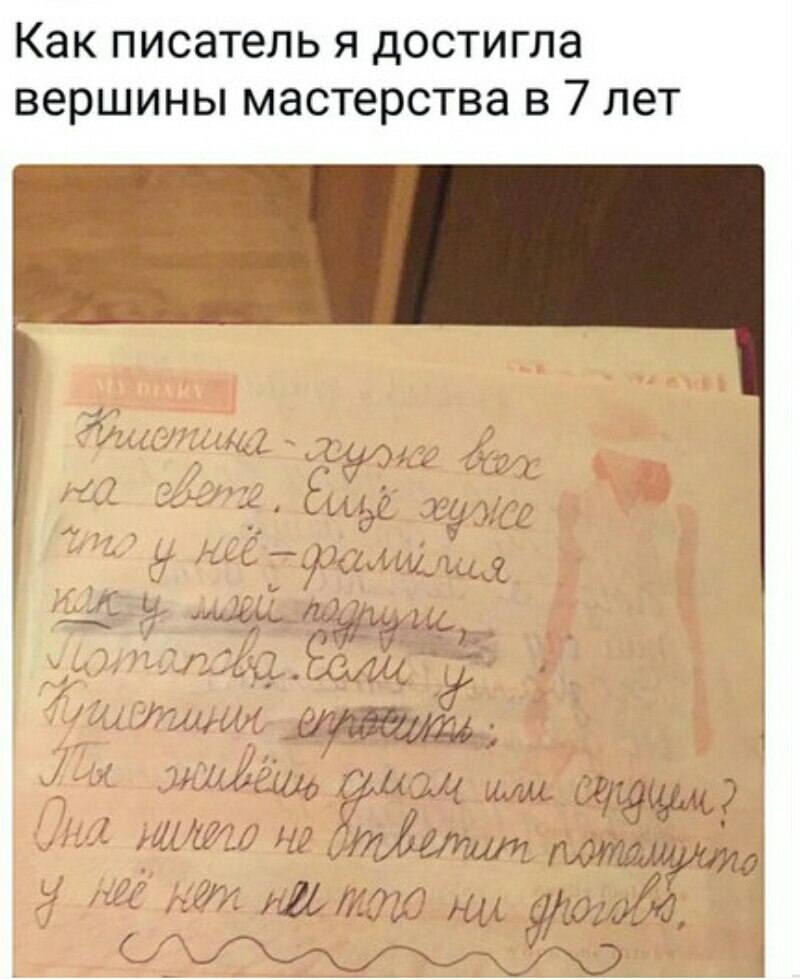 Как писатель я достигла
вершины мастерства в 7 лет
MY DIARY
Кристина - хуже всех
на свете. Ещё хуже
что у неё – фамилия
как у моей подруги,
Потапова. Если у
Кристины спросить:
Ты живёшь умом или сердцем?
Она ничего не ответит потомучто
у неё нет ни того ни дрогово.